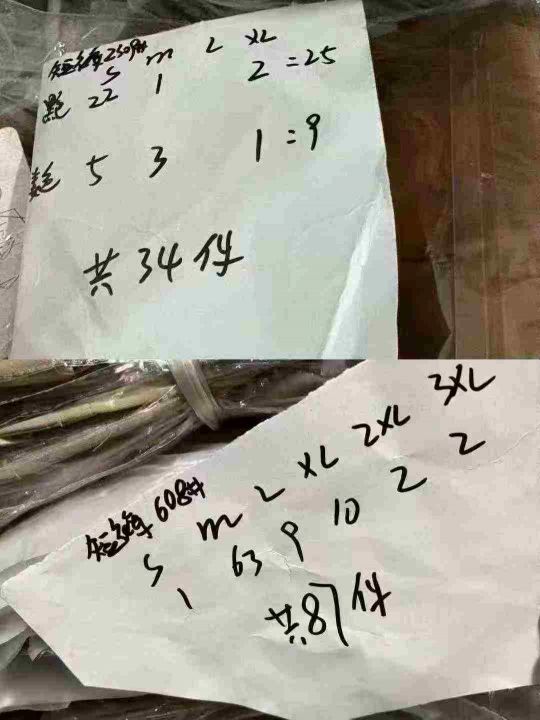 短袖2509#
S m L XL
黑色 22 1 2 =25
5 3 1 =9
共 34 件
短袖 608#
S m L XL 2XL 3XL
1 63 9 10 2 2
共87件